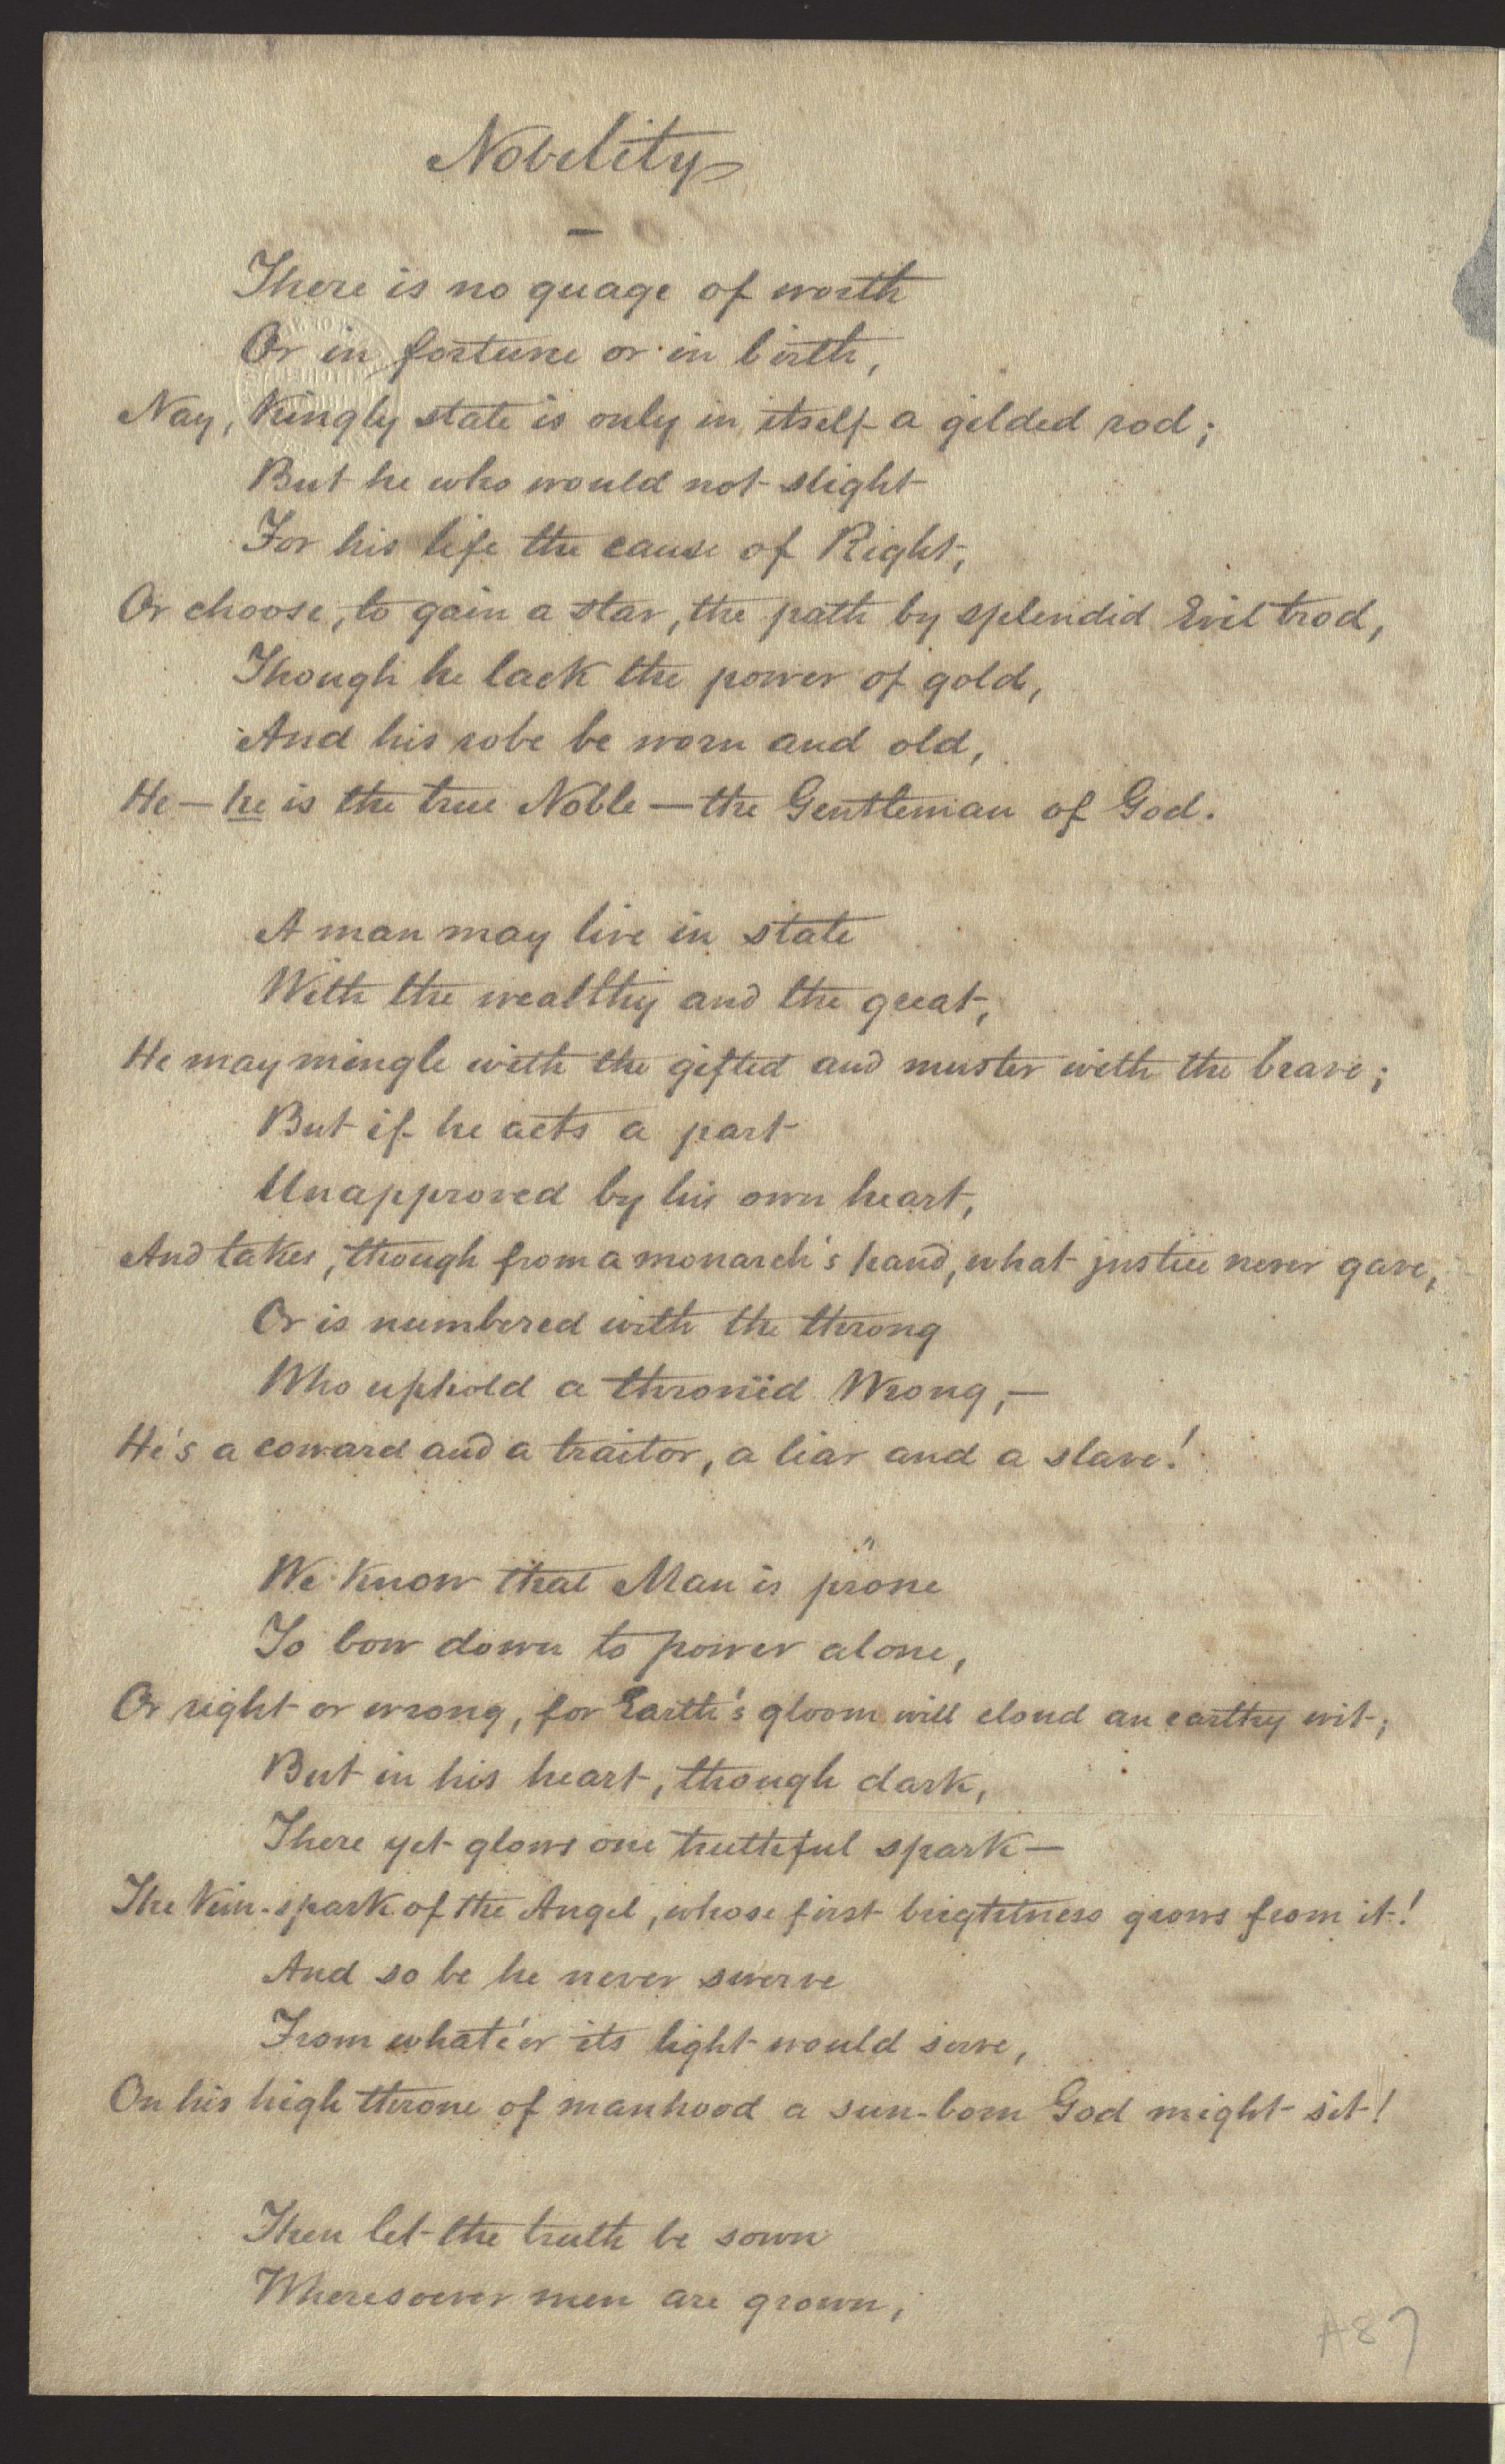 Nobility
—
There is no guage of worth
Or in fortune or in birth,
Nay, Kingly state is only in itself a gilded rod;
But he who would not slight
For his life the cause of Right,
Or choose, to gain a star, the path by splendid Evil trod,
Though he lack the power of gold,
And his robe be worn and old,
He — he is the true Noble — the Gentleman of God.
A man may live in state
With the wealthy and the great,
He may mingle with the gifted and muster with the brave;
But if he acts a part
Unapproved by his own heart,
And takes, though from a monarch's hand, what justice never gave,
Or is numbered with the throng
Who uphold a thronëd Wrong, —
He's a coward and a traitor, a liar and a slave!
We know that Man is prone
To bow down to power alone,
Or right or wrong, for Earth's gloom will cloud an earthy wit;
But in his heart, though dark,
There yet glows one truthful spark —
The Kin-spark of the Angel, whose first brightness grows from it!
And so be he never swerve
From whate'er its light would serve,
On his high throne of manhood a sun-born God might sit!
Then let the truth be sown
Wheresoever men are grown,
A87